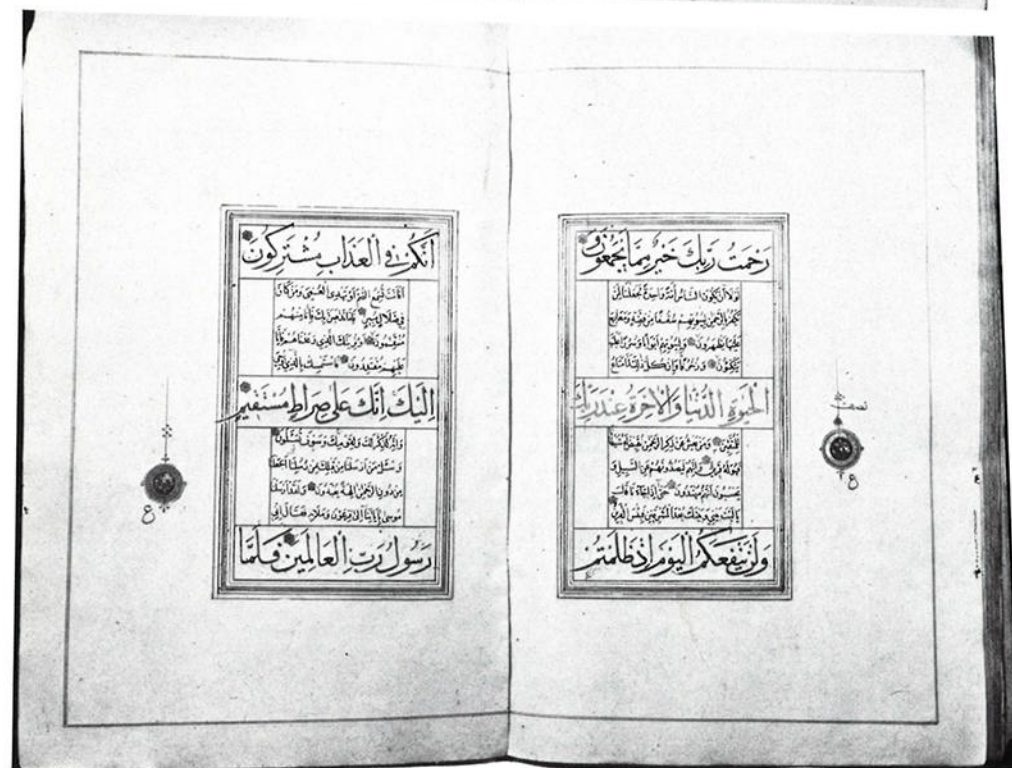 رَحْمَتُ رَبِّكَ خَيْرٌ مِمَّا يَجْمَعُونَ وَ
لَوْلَا أَنْ يَكُونَ النَّاسُ أُمَّةً وَاحِدَةً لَجَعَلْنَا لِمَنْ
يَكْفُرُ بِالرَّحْمٰنِ لِبُيُوتِهِمْ سُقُفًا مِنْ فِضَّةٍ وَمَعَارِجَ
عَلَيْهَا يَظْهَرُونَ وَلِبُيُوتِهِمْ أَبْوَابًا وَسُرُرًا عَلَيْهَا
يَتَّكِئُونَ وَزُخْرُفًا وَإِنْ كُلُّ ذٰلِكَ لَمَّا مَتَاعُ
الْحَيٰوةِ الدُّنْيَا وَالْاٰخِرَةُ عِنْدَ رَبِّكَ
لِلْمُتَّقِينَ وَمَنْ يَعْشُ عَنْ ذِكْرِ الرَّحْمٰنِ نُقَيِّضْ لَهُ شَيْطَانًا
فَهُوَ لَهُ قَرِينٌ وَإِنَّهُمْ لَيَصُدُّونَهُمْ عَنِ السَّبِيلِ وَ
يَحْسَبُونَ أَنَّهُمْ مُهْتَدُونَ حَتَّى إِذَا جَاءَنَا قَالَ
يَا لَيْتَ بَيْنِي وَبَيْنَكَ بُعْدَ الْمَشْرِقَيْنِ فَبِئْسَ الْقَرِينُ
وَلَنْ يَنْفَعَكُمُ الْيَوْمَ إِذْ ظَلَمْتُمْ
نصف
ع
أَنَّكُمْ فِي الْعَذَابِ مُشْتَرِكُونَ
أَفَأَنْتَ تُسْمِعُ الصُّمَّ أَوْ تَهْدِي الْعُمْيَ وَمَنْ كَانَ
فِي ضَلَالٍ مُبِينٍ فَإِمَّا نَذْهَبَنَّ بِكَ فَإِنَّا مِنْهُمْ
مُنْتَقِمُونَ أَوْ نُرِيَنَّكَ الَّذِي وَعَدْنَاهُمْ فَإِنَّا
عَلَيْهِمْ مُقْتَدِرُونَ فَاسْتَمْسِكْ بِالَّذِي أُوحِيَ
إِلَيْكَ إِنَّكَ عَلَى صِرَاطٍ مُسْتَقِيمٍ
وَإِنَّهُ لَذِكْرٌ لَكَ وَلِقَوْمِكَ وَسَوْفَ تُسْأَلُونَ
وَسْئَلْ مَنْ أَرْسَلْنَا مِنْ قَبْلِكَ مِنْ رُسُلِنَا أَجَعَلْنَا
مِنْ دُونِ الرَّحْمٰنِ اٰلِهَةً يُعْبَدُونَ وَلَقَدْ أَرْسَلْنَا
مُوسَى بِاٰيَاتِنَا إِلَى فِرْعَوْنَ وَمَلَائِهِ فَقَالَ إِنِّي
رَسُولُ رَبِّ الْعَالَمِينَ فَلَمَّا
ع